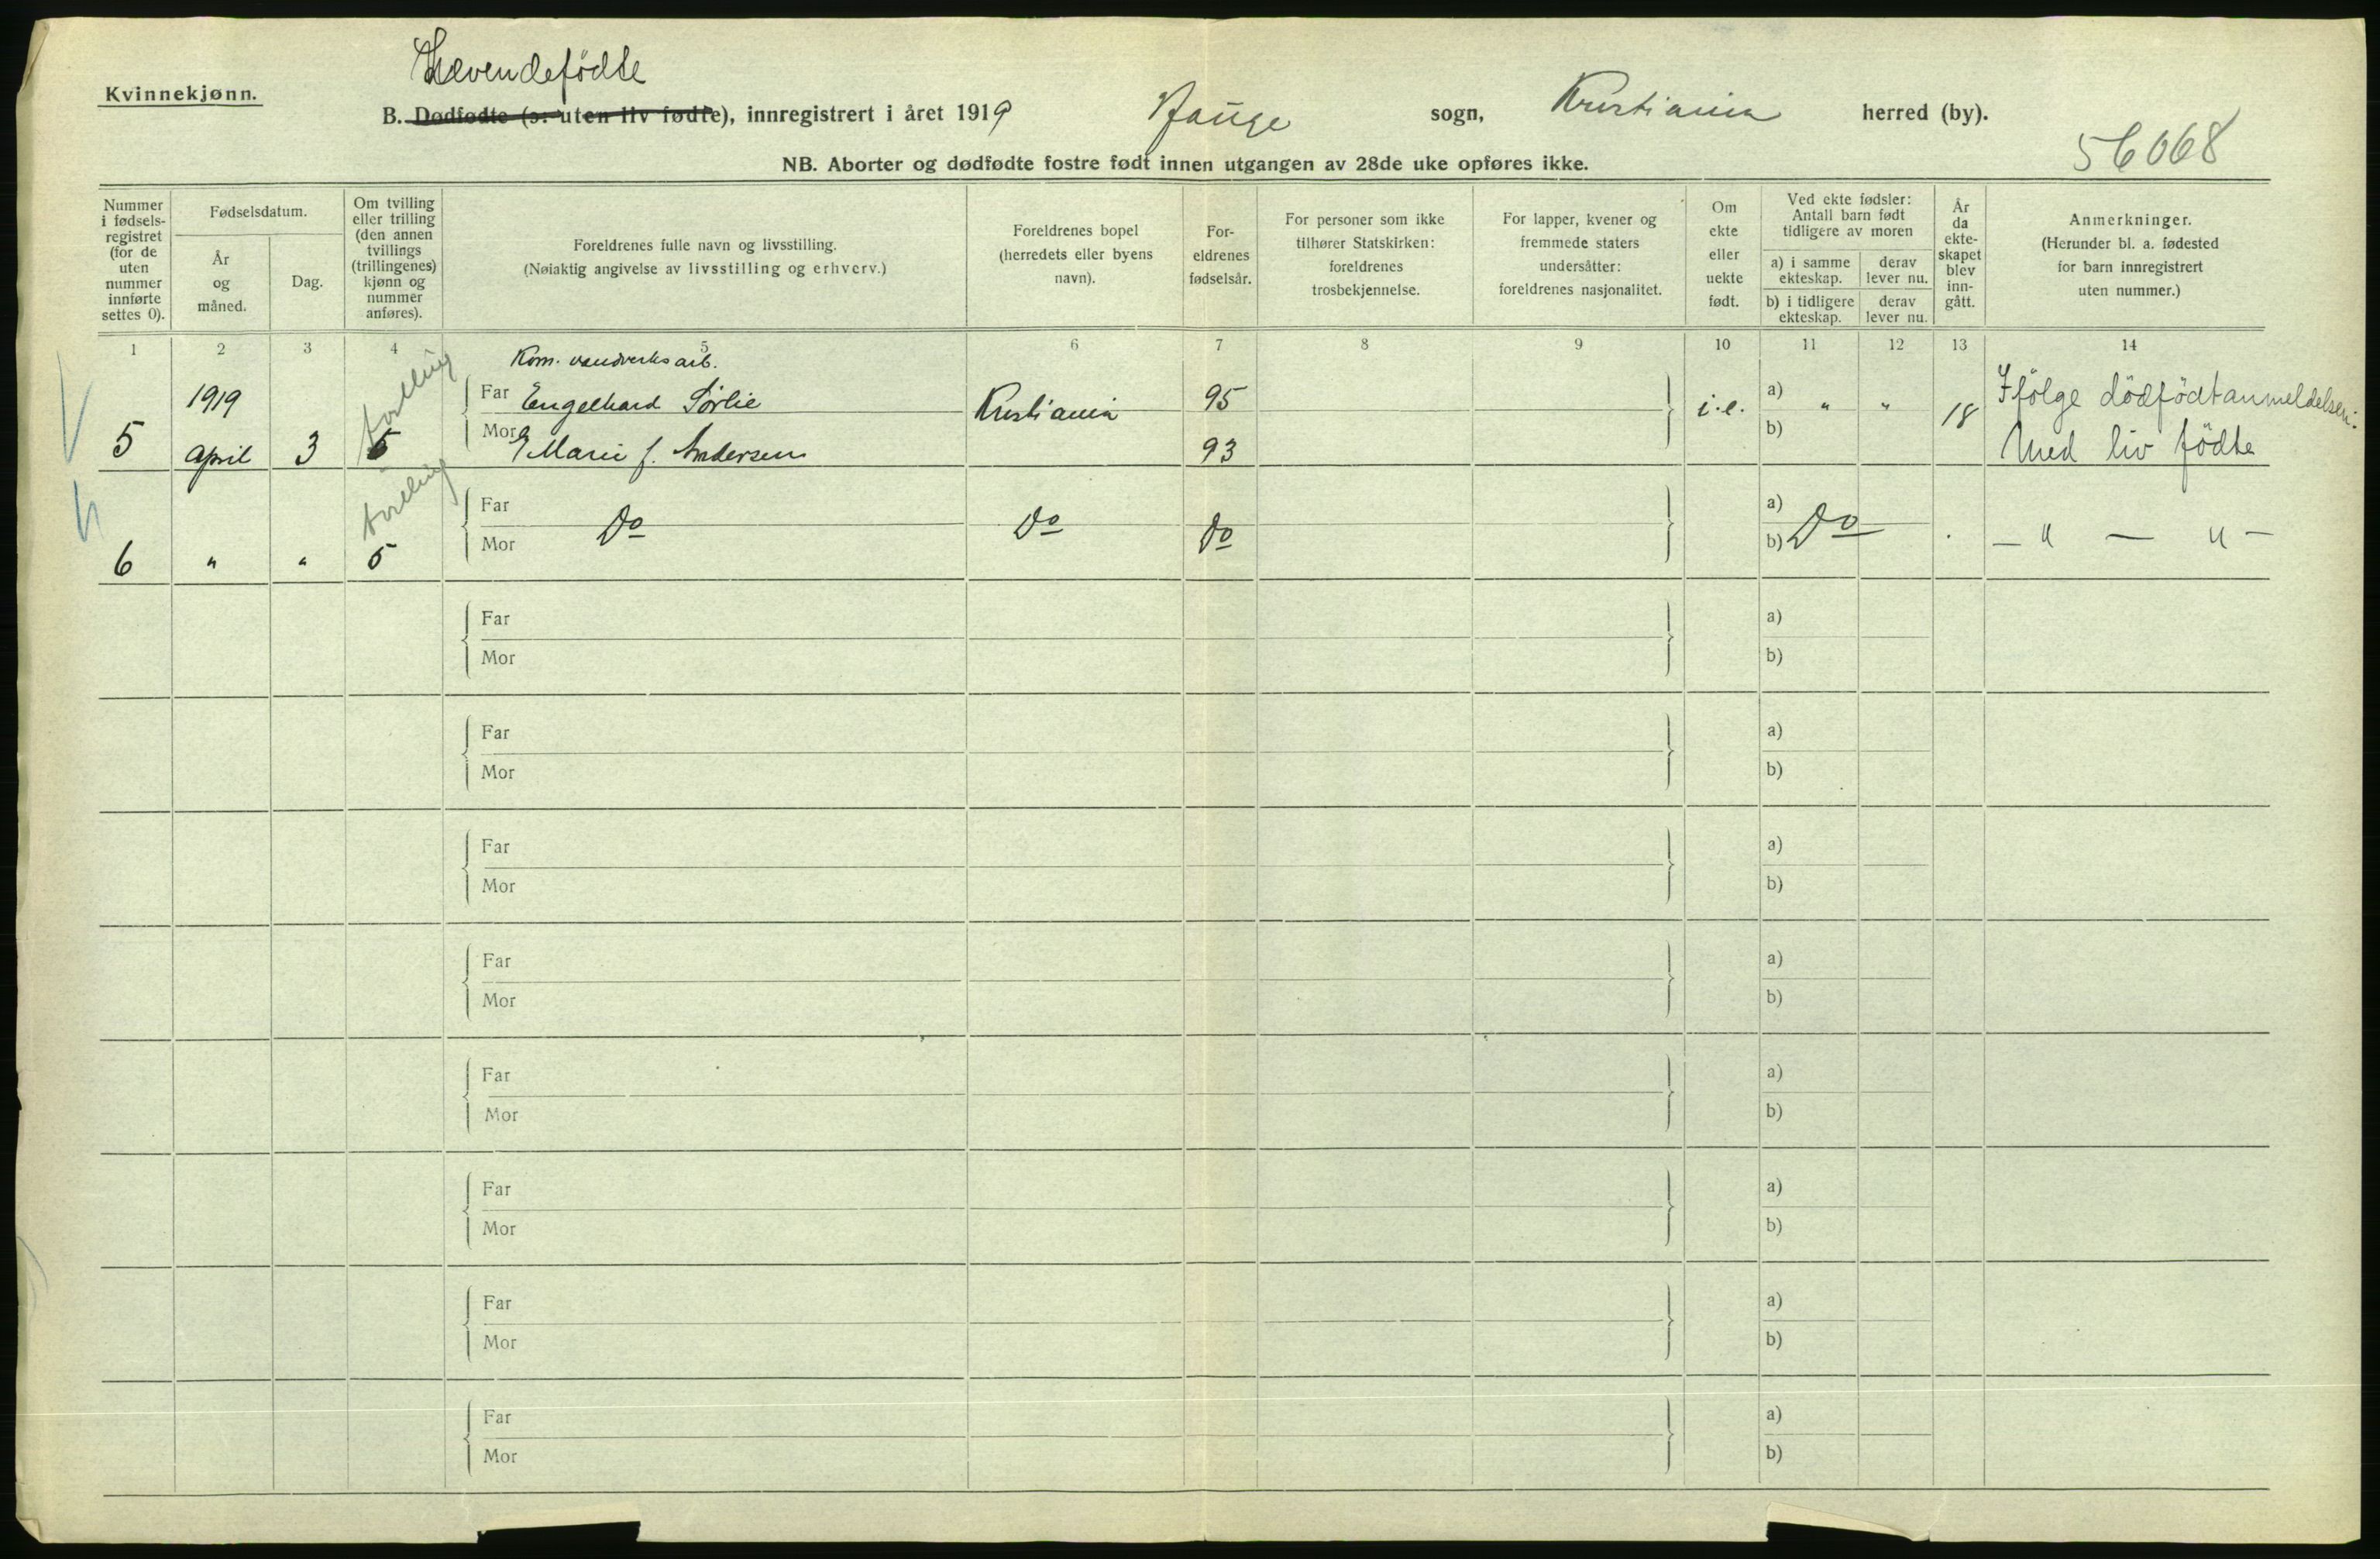 Levendefødte
Kvinnekjønn.
B. Dødfødte (ɔ: uten liv fødte), innregistrert i året 1919 Hauge sogn, Kristiania herred (by).
56068
NB. Aborter og dødfødte fostre født innen utgangen av 28de uke opføres ikke.
Nummer i fødsels-registret (for de uten nummer innførte settes 0).
Fødselsdatum.
År og måned.
Dag.
Om tvilling eller trilling (den annen tvillings (trillingenes) kjønn og nummer anføres).
Foreldrenes fulle navn og livsstilling.
(Nøiaktig angivelse av livsstilling og erhverv.)
Foreldrenes bopel (herredets eller byens navn).
For-eldrenes fødselsår.
For personer som ikke tilhører Statskirken: foreldrenes trosbekjennelse.
For lapper, kvener og fremmede staters undersåtter: foreldrenes nasjonalitet.
Om ekte eller uekte født.
Ved ekte fødsler: Antall barn født tidligere av moren
a) i samme ekteskap.
derav lever nu.
b) i tidligere ekteskap.
derav lever nu.
År da ekte-skapet blev inn-gått.
Anmerkninger.
(Herunder bl. a. fødested for barn innregistrert uten nummer.)
1 2 3 4 5 6 7 8 9 10 11 12 13 14
Kom. vandverksarb.
tvilling
1919 Far Engelhard Sørlie Kristiania 95 i.e. a) " " 18 Ifølge dødfødtanmeldelsen.
5 April 3 5 Mor Marie f. Andersen 93 b) Med liv fødte
tvilling
Far Do Do Do a) Do . — " — " —
6 " " 5 Mor b)
Far a)
Mor b)
Far a)
Mor b)
Far a)
Mor b)
Far a)
Mor b)
Far a)
Mor b)
Far a)
Mor b)
Far a)
Mor b)
Far a)
Mor b)